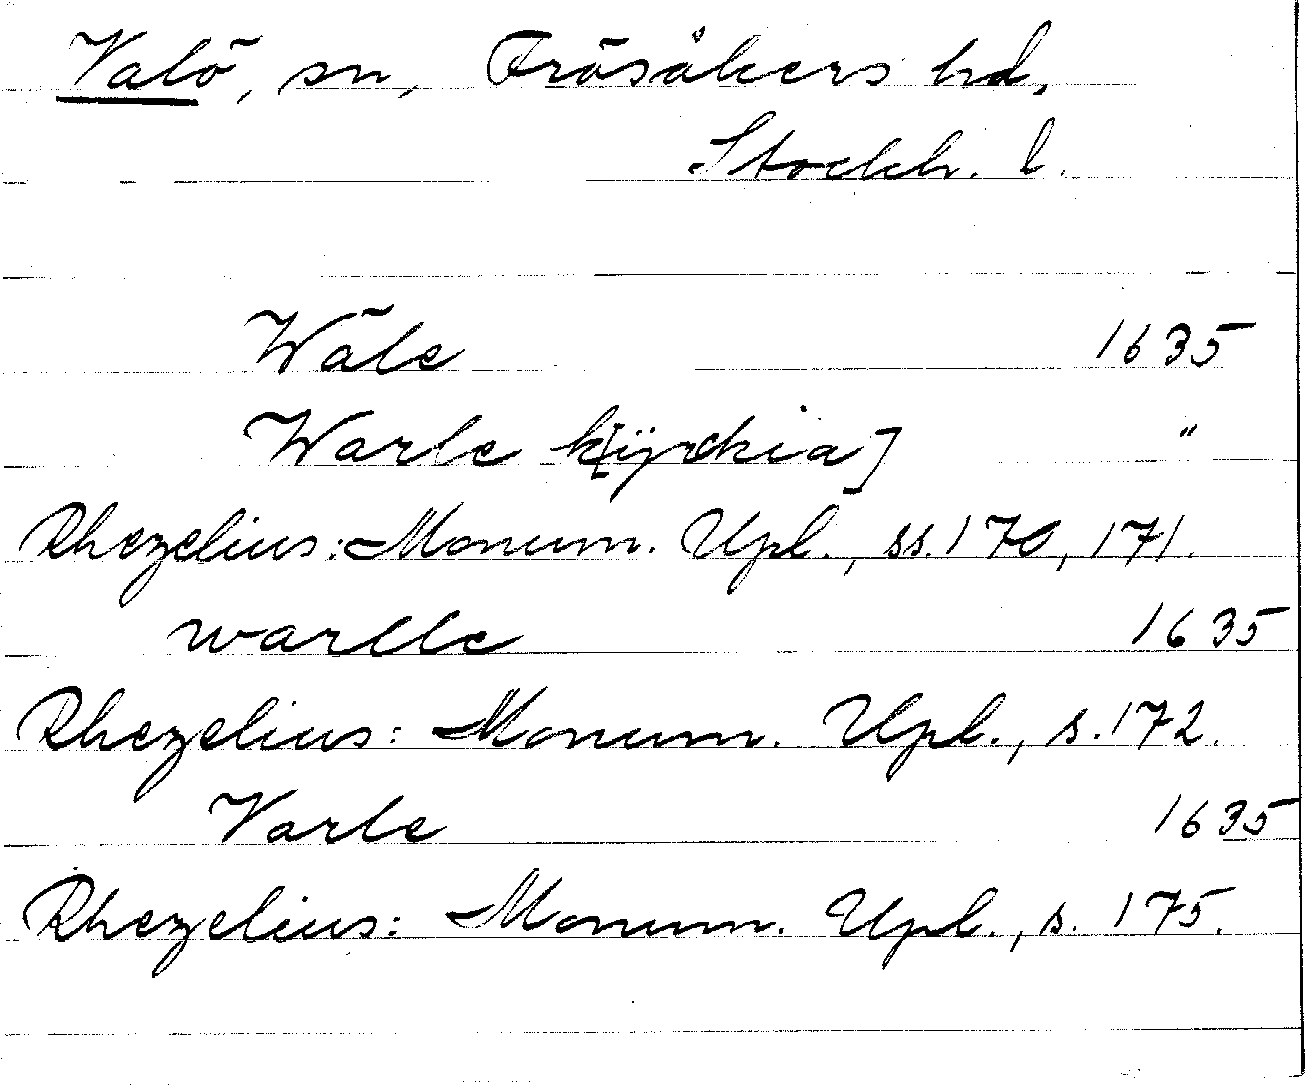 Valö, sn, Frösåkers hd,
Stockh. l.
Wåle 1635
Warle k[ÿrckia] "
Rhezelius: Monum. Upl., ss. 170, 171.
warlle 1635
Rhezelius: Monum. Upl., s. 172.
Varle 1635
Rhezelius: Monum. Upl., s. 175.